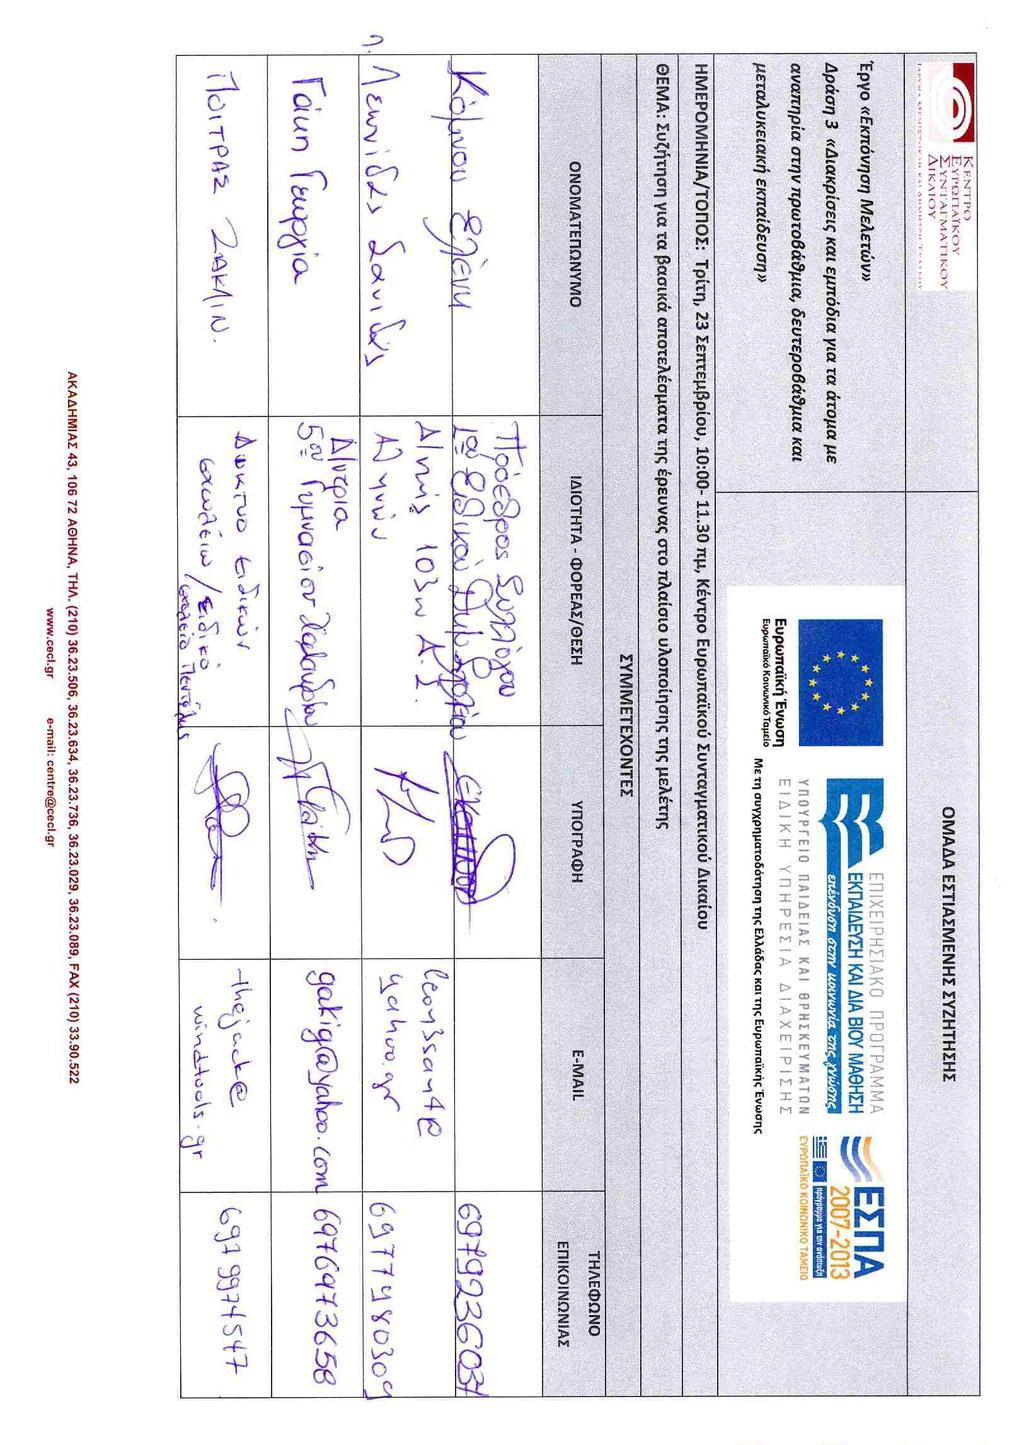 ΚΕΝΤΡΟ
ΕΥΡΩΠΑΪΚΟΥ
ΣΥΝΤΑΓΜΑΤΙΚΟΥ
ΔΙΚΑΙΟΥ
ΟΜΑΔΑ ΕΣΤΙΑΣΜΕΝΗΣ ΣΥΖΗΤΗΣΗΣ
Έργο «Εκπόνηση Μελετών»
Δράση 3 «Διακρίσεις και εμπόδια για τα άτομα με
αναπηρία στην πρωτοβάθμια, δευτεροβάθμια και
μεταλυκειακή εκπαίδευση»
Ευρωπαϊκή Ένωση
Ευρωπαϊκό Κοινωνικό Ταμείο
ΕΠΙΧΕΙΡΗΣΙΑΚΟ ΠΡΟΓΡΑΜΜΑ
ΕΚΠΑΙΔΕΥΣΗ ΚΑΙ ΔΙΑ ΒΙΟΥ ΜΑΘΗΣΗ
επένδυση στην κοινωνία της γνώσης
ΥΠΟΥΡΓΕΙΟ ΠΑΙΔΕΙΑΣ ΚΑΙ ΘΡΗΣΚΕΥΜΑΤΩΝ
ΕΙΔΙΚΗ ΥΠΗΡΕΣΙΑ ΔΙΑΧΕΙΡΙΣΗΣ
Με τη συγχρηματοδότηση της Ελλάδας και της Ευρωπαϊκής Ένωσης
ΕΣΠΑ
2007-2013
πρόγραμμα για την ανάπτυξη
ΕΥΡΩΠΑΪΚΟ ΚΟΙΝΩΝΙΚΟ ΤΑΜΕΙΟ
ΗΜΕΡΟΜΗΝΙΑ/ΤΟΠΟΣ: Τρίτη, 23 Σεπτεμβρίου, 10:00- 11.30 πμ, Κέντρο Ευρωπαϊκού Συνταγματικού Δικαίου
ΘΕΜΑ: Συζήτηση για τα βασικά αποτελέσματα της έρευνας στο πλαίσιο υλοποίησης της μελέτης
ΣΥΜΜΕΤΕΧΟΝΤΕΣ
ΟΝΟΜΑΤΕΠΩΝΥΜΟ
ΙΔΙΟΤΗΤΑ - ΦΟΡΕΑΣ/ΘΕΣΗ
ΥΠΟΓΡΑΦΗ
E-MAIL
ΤΗΛΕΦΩΝΟ
ΕΠΙΚΟΙΝΩΝΙΑΣ
Ελένη
Πρόεδρος Συλλόγου
1ου Ειδικού
6979236037
Λεωνίδας Σανιδάς
Δ/ντής 103ου Δ.Σ
Αθηνών
yahoo.gr
Γάκη Γεωργία
Δ/ντρια
5ου Γυμνασίου Χαλανδρίου
gakig@yahoo.com
6976973658
ΠΟΙΤΡΑΣ ΖΑΚΛΙΝ.
Δίκτυο ειδικών
σχολείων / ειδικό
σχολείο Πεντέλης
thejack@
windtools.gr
6979974547
ΑΚΑΔΗΜΙΑΣ 43, 106 72 ΑΘΗΝΑ, ΤΗΛ. (210) 36.23.506, 36.23.634, 36.23.736, 36.23.029, 36.23.089, FAX (210) 33.90.522
www.cecl.gr e-mail: centre@cecl.gr